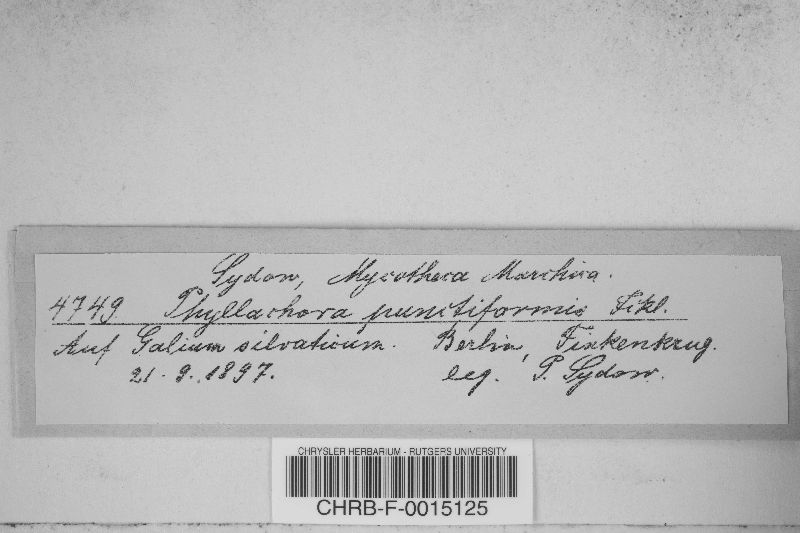 Sydow, Mycotheca Marchica.
4749. Phyllachora punctiformis Fckl.
Auf Galium silvaticum. Berlin, Finkenkrug.
21. 9. 1897. leg. P. Sydow.
CHRYSLER HERBARIUM - RUTGERS UNIVERSITY
CHRB-F-0015125